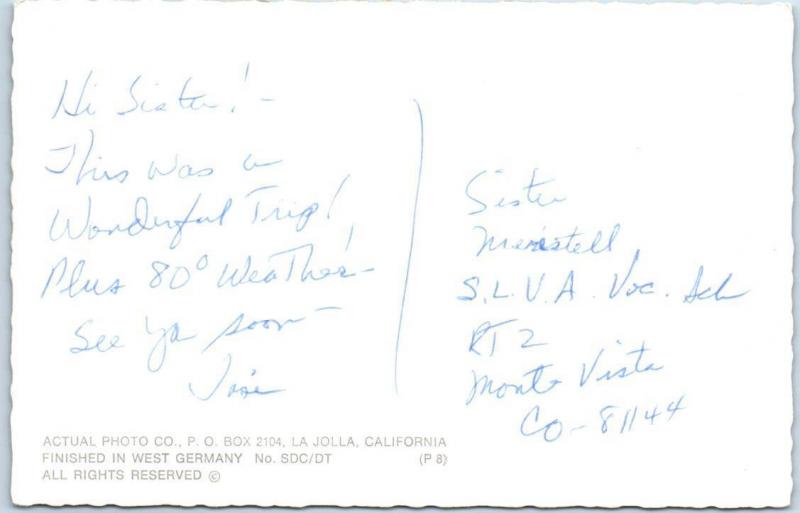 Hi Sister! -
This was a
Wonderful Trip!
Plus 80° Weather! -
See ya soon -
Sister
S.L.V.A. Voc. Sch
RT 2
Monte Vista
CO - 81144
ACTUAL PHOTO CO., P. O. BOX 2104, LA JOLLA, CALIFORNIA
FINISHED IN WEST GERMANY No. SDC/DT (P 8)
ALL RIGHTS RESERVED ©